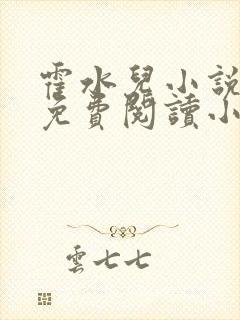 霍水兒小說
免費閱讀小
雲七七